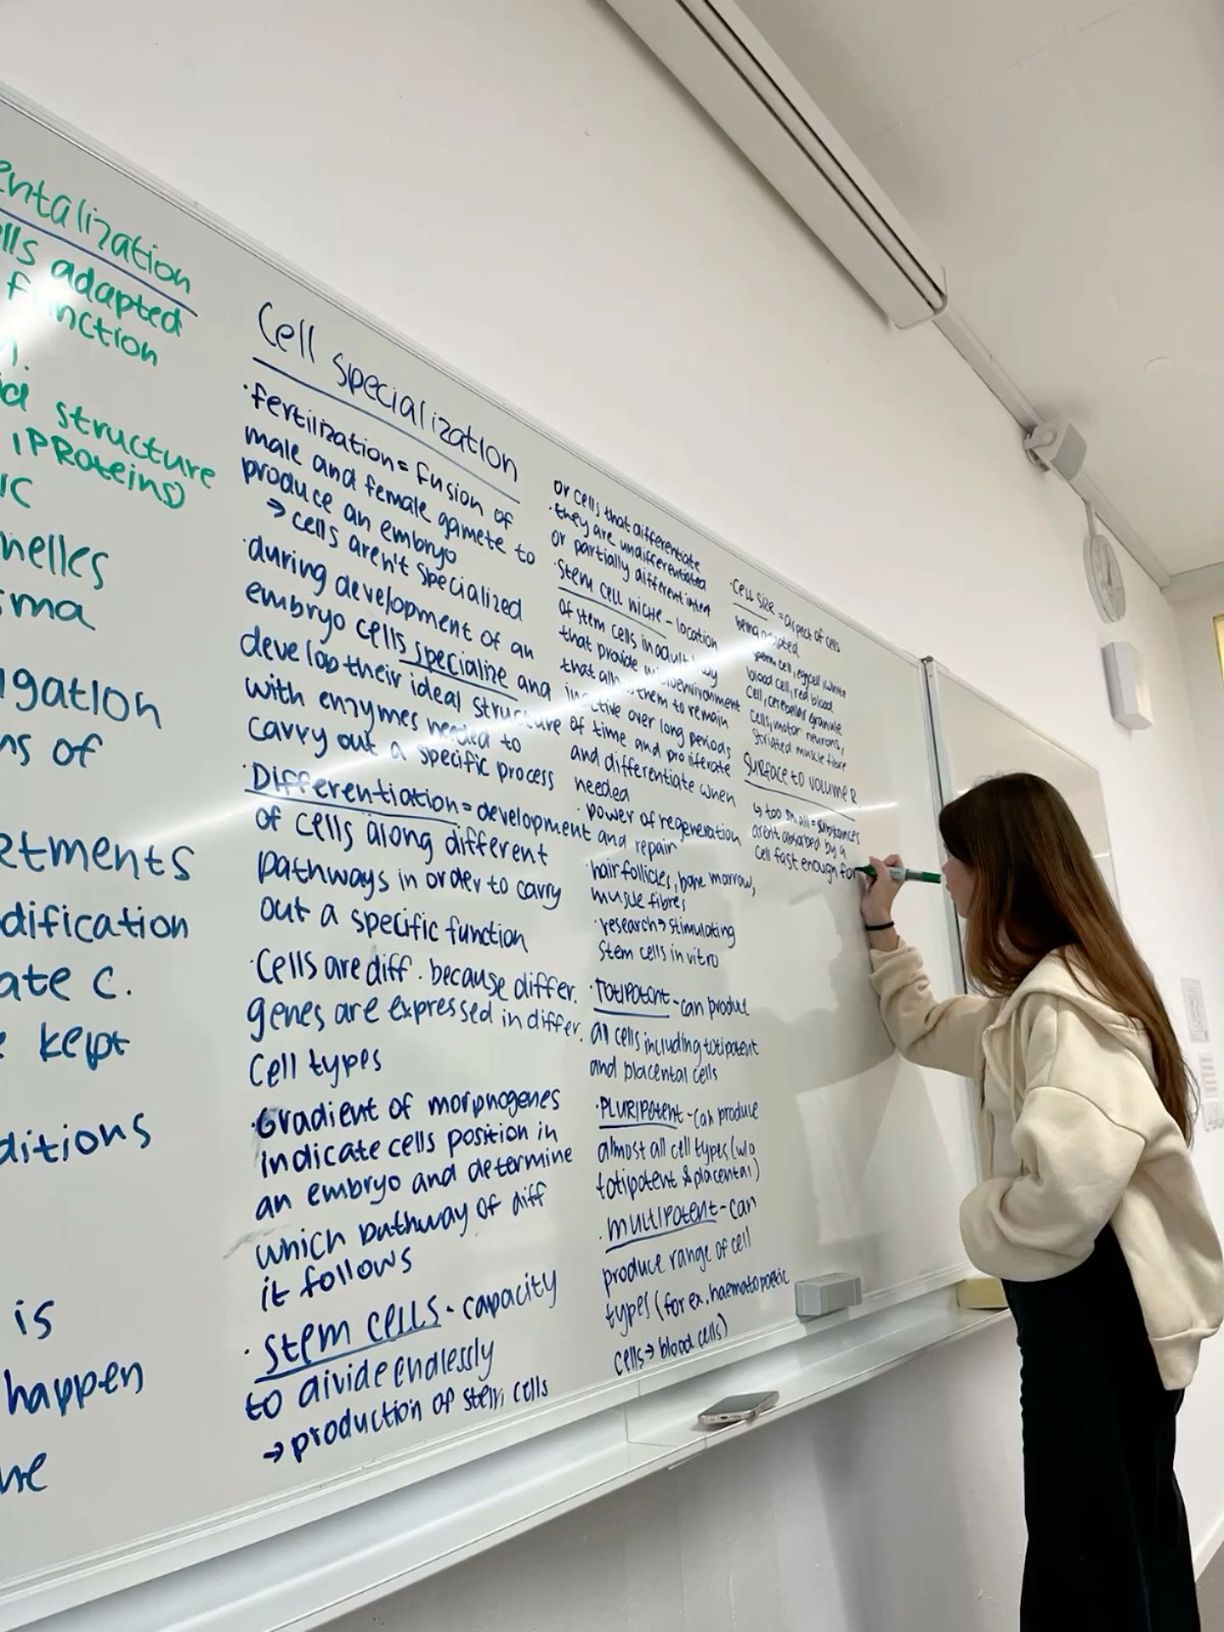 entalization
ells adapted
function
n.
d structure
(PROteins)
IC
nelles
sma
igation
ns of
etments
dification
ate c.
e kept
ditions
is
happen
ure
Cell specialization
·fertilization = fusion of
male and female gamete to
produce an embryo
→ cells aren't specialized
·during development of an
embryo cells specialize and
develop their ideal structure
with enzymes needed to
carry out a specific process
·Differentiation = development
of cells along different
pathways in order to carry
out a specific function
·Cells are diff. because differ.
genes are expressed in differ.
cell types
·Gradient of morphogenes
indicate cells position in
an embryo and determine
which pathway of diff
it follows
·stem cells - capacity
to divide endlessly
→ production of stem cells
or cells that differentiate
·they are undifferentiated
or partially
·Stem cell niche - location
of stem cells in adult body
that provide microenvironment
that allow them to remain
inactive over long periods
of time and proliferate
and differentiate when
needed
·power of regeneration
and repair
·hair follicles, bone marrow,
muscle fibres
·research → stimulating
stem cells in vitro
·TOTIPOtent - can produce
all cells including totipotent
and placental cells
·PLURIPOtent - can produce
almost all cell types (w/o
totipotent & placental)
·multipotent - can
produce range of cell
types (for ex. haematopoetic
cells → blood cells)
·Cell size = aspect of cells
being adapted
sperm cell, egg cell, white
blood cell, red blood
cell, cerebellar granule
cells, motor neurons,
striated muscle fibre
Surface to volume R
↳ too small = substances
arent absorbed by a
cell fast enough for